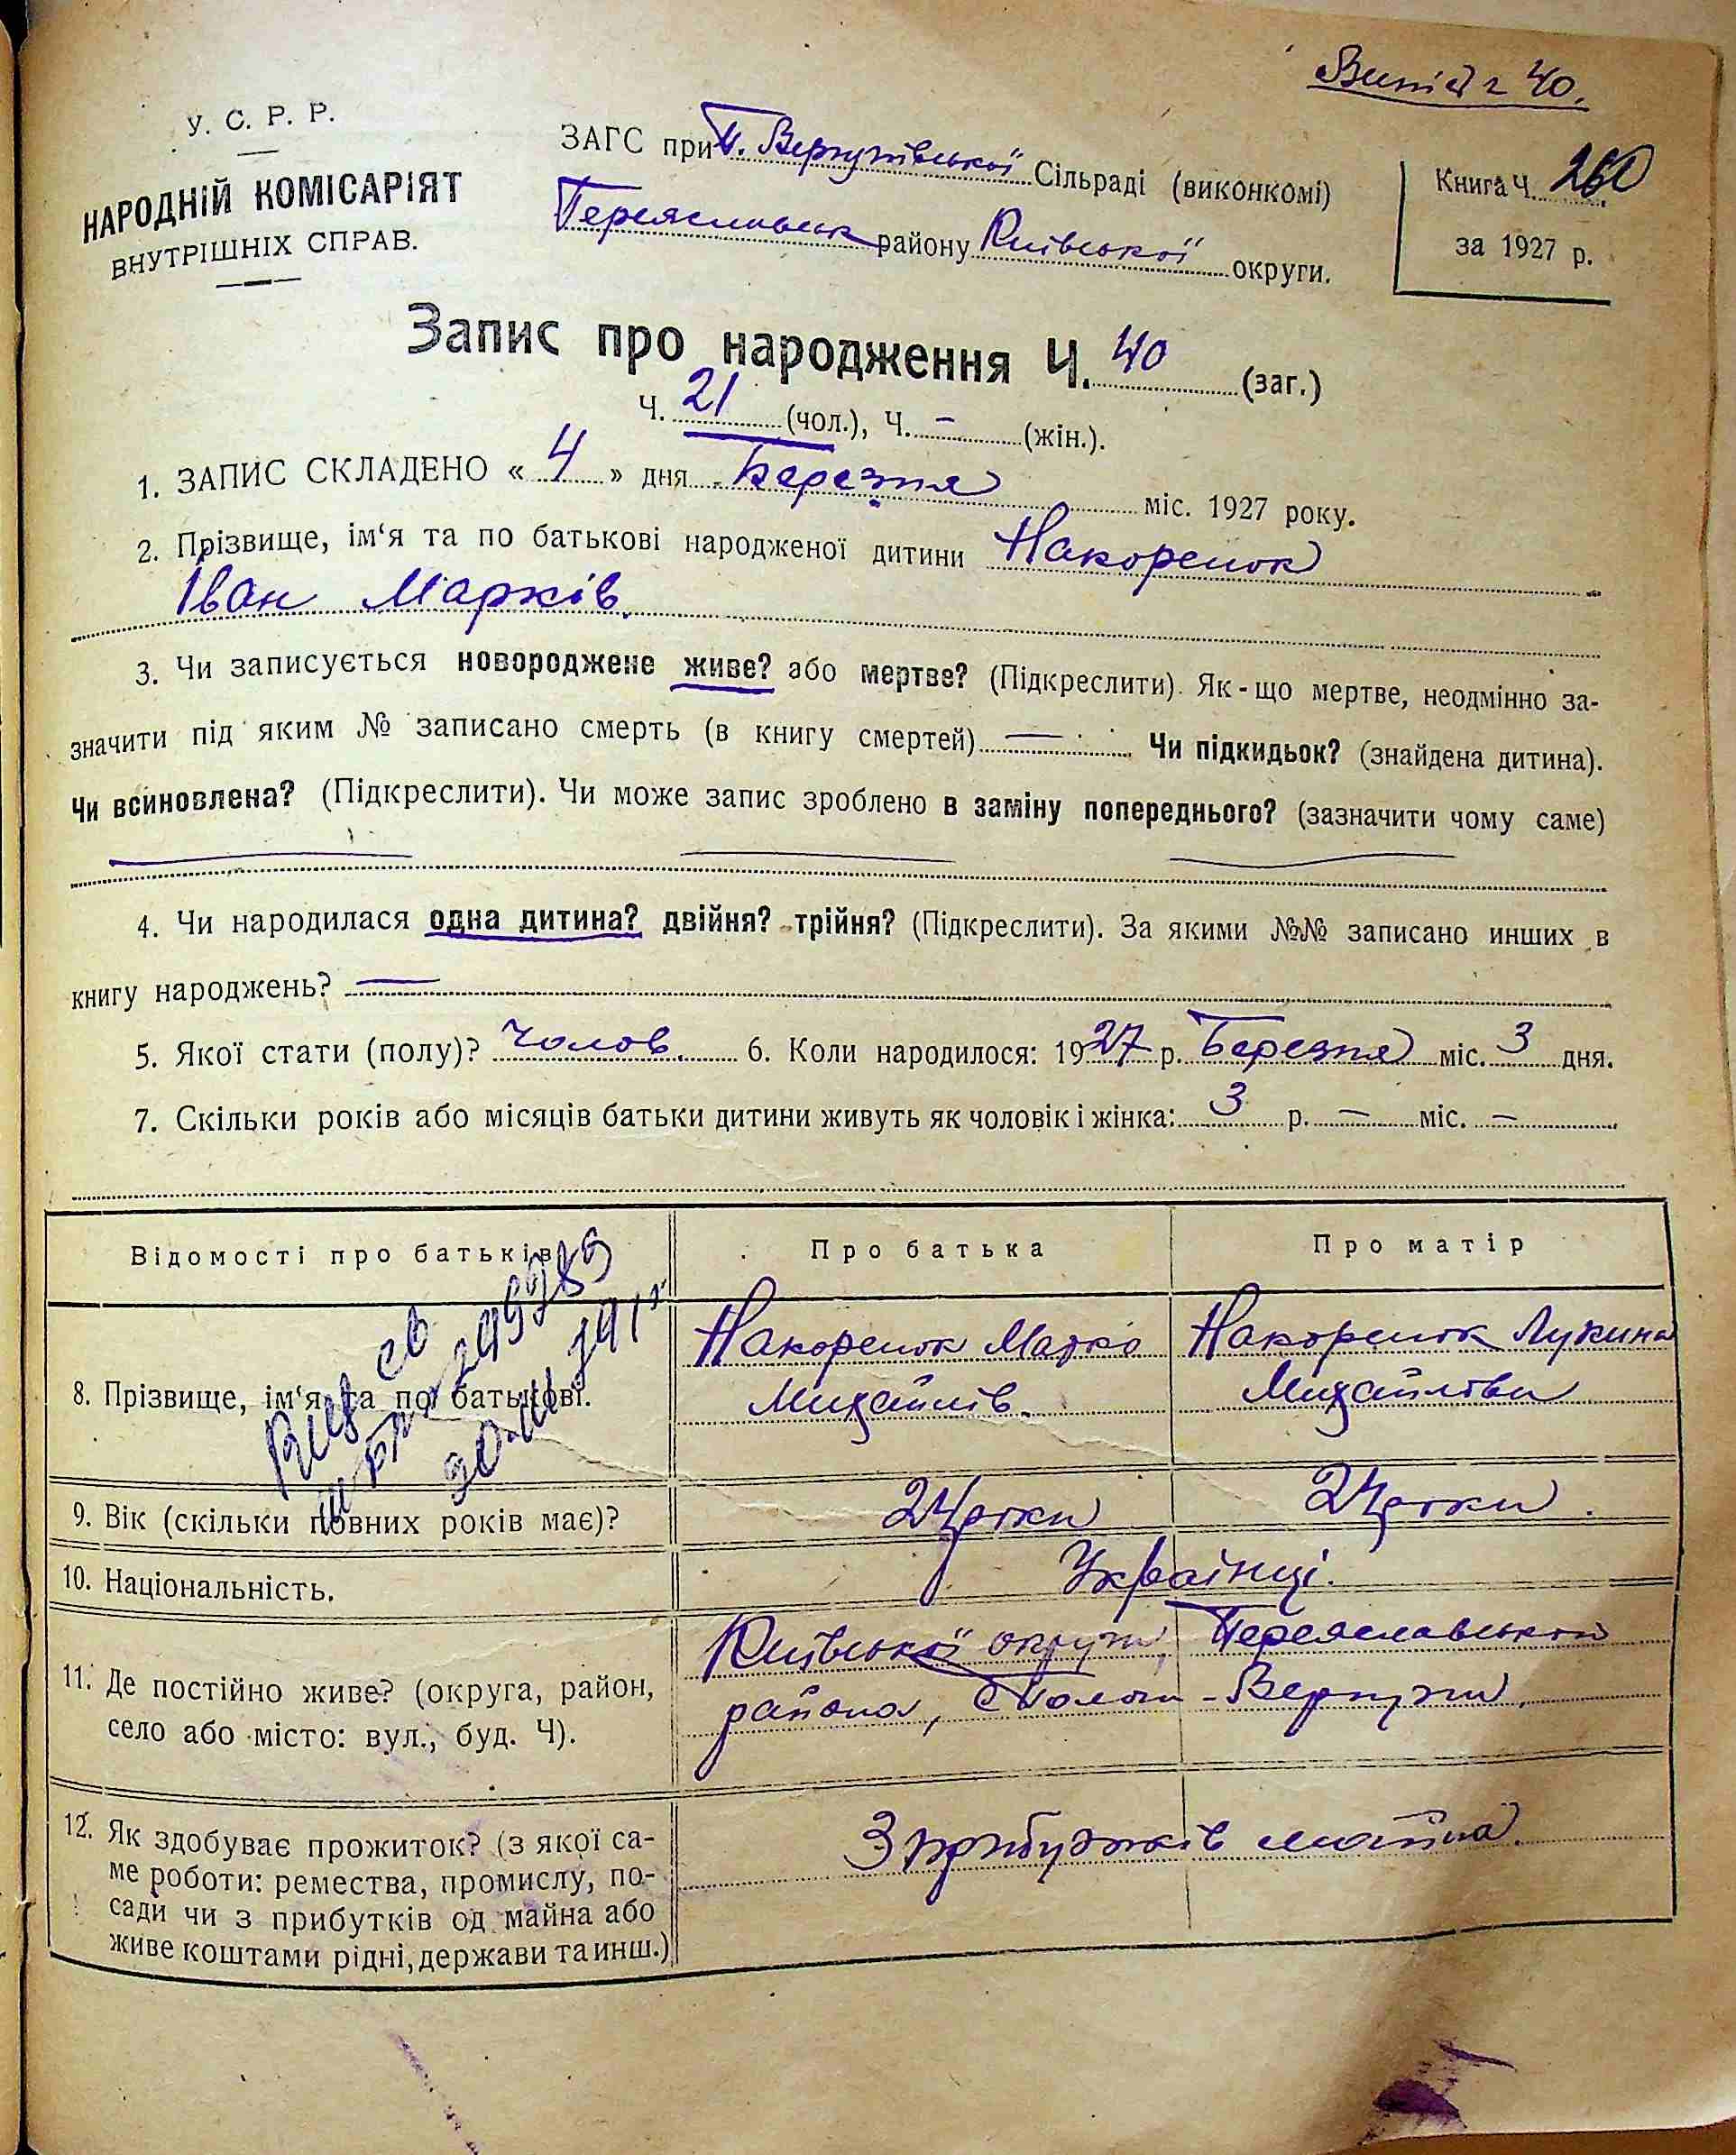 Витяг 40.
У. С. Р. Р.
НАРОДНІЙ КОМІСАРІЯТ
ВНУТРІШНІХ СПРАВ.
ЗАГС при П. Вергунівської Сільраді (виконкомі)
Переяславськ району Київської округи.
Книга Ч. 260
за 1927 р.
Запис про народження Ч. 40 (заг.)
Ч. 21 (чол.), Ч. – (жін.).
1. ЗАПИС СКЛАДЕНО « 4 » дня Березня міс. 1927 року.
2. Прізвище, ім‘я та по батькові народженої дитини Накоренок
Іван Марків.
3. Чи записується новороджене живе? або мертве? (Підкреслити). Як-що мертве, неодмінно за-
значити під яким № записано смерть (в книгу смертей) — Чи підкидьок? (знайдена дитина).
Чи всиновлена? (Підкреслити). Чи може запис зроблено в заміну попереднього? (зазначити чому саме)
4. Чи народилася одна дитина? двійня? трійня? (Підкреслити). За якими №№ записано инших в
книгу народжень? —
5. Якої стати (полу)? Чолов. 6. Коли народилося: 1927 р. Березня міс. 3 дня.
7. Скільки років або місяців батьки дитини живуть як чоловік і жінка: 3 р. – міс. –
Відомості про батьків Про батька Про матір
8. Прізвище, ім‘я та по батькові.
Накоренок Марко
Михайлів.
Накоренок Лукина
Михайлівна
9. Вік (скільки повних років має)? 24 роки 24 роки.
10. Національність. Українці.
11. Де постійно живе? (округа, район,
село або місто: вул., буд. Ч).
Київської округи, Переяславського
района, Вергуни.
12. Як здобуває прожиток? (з якої са-
ме роботи: ремества, промислу, по-
сади чи з прибутків од майна або
живе коштами рідні, держави та инш.)
З прибутків майна.